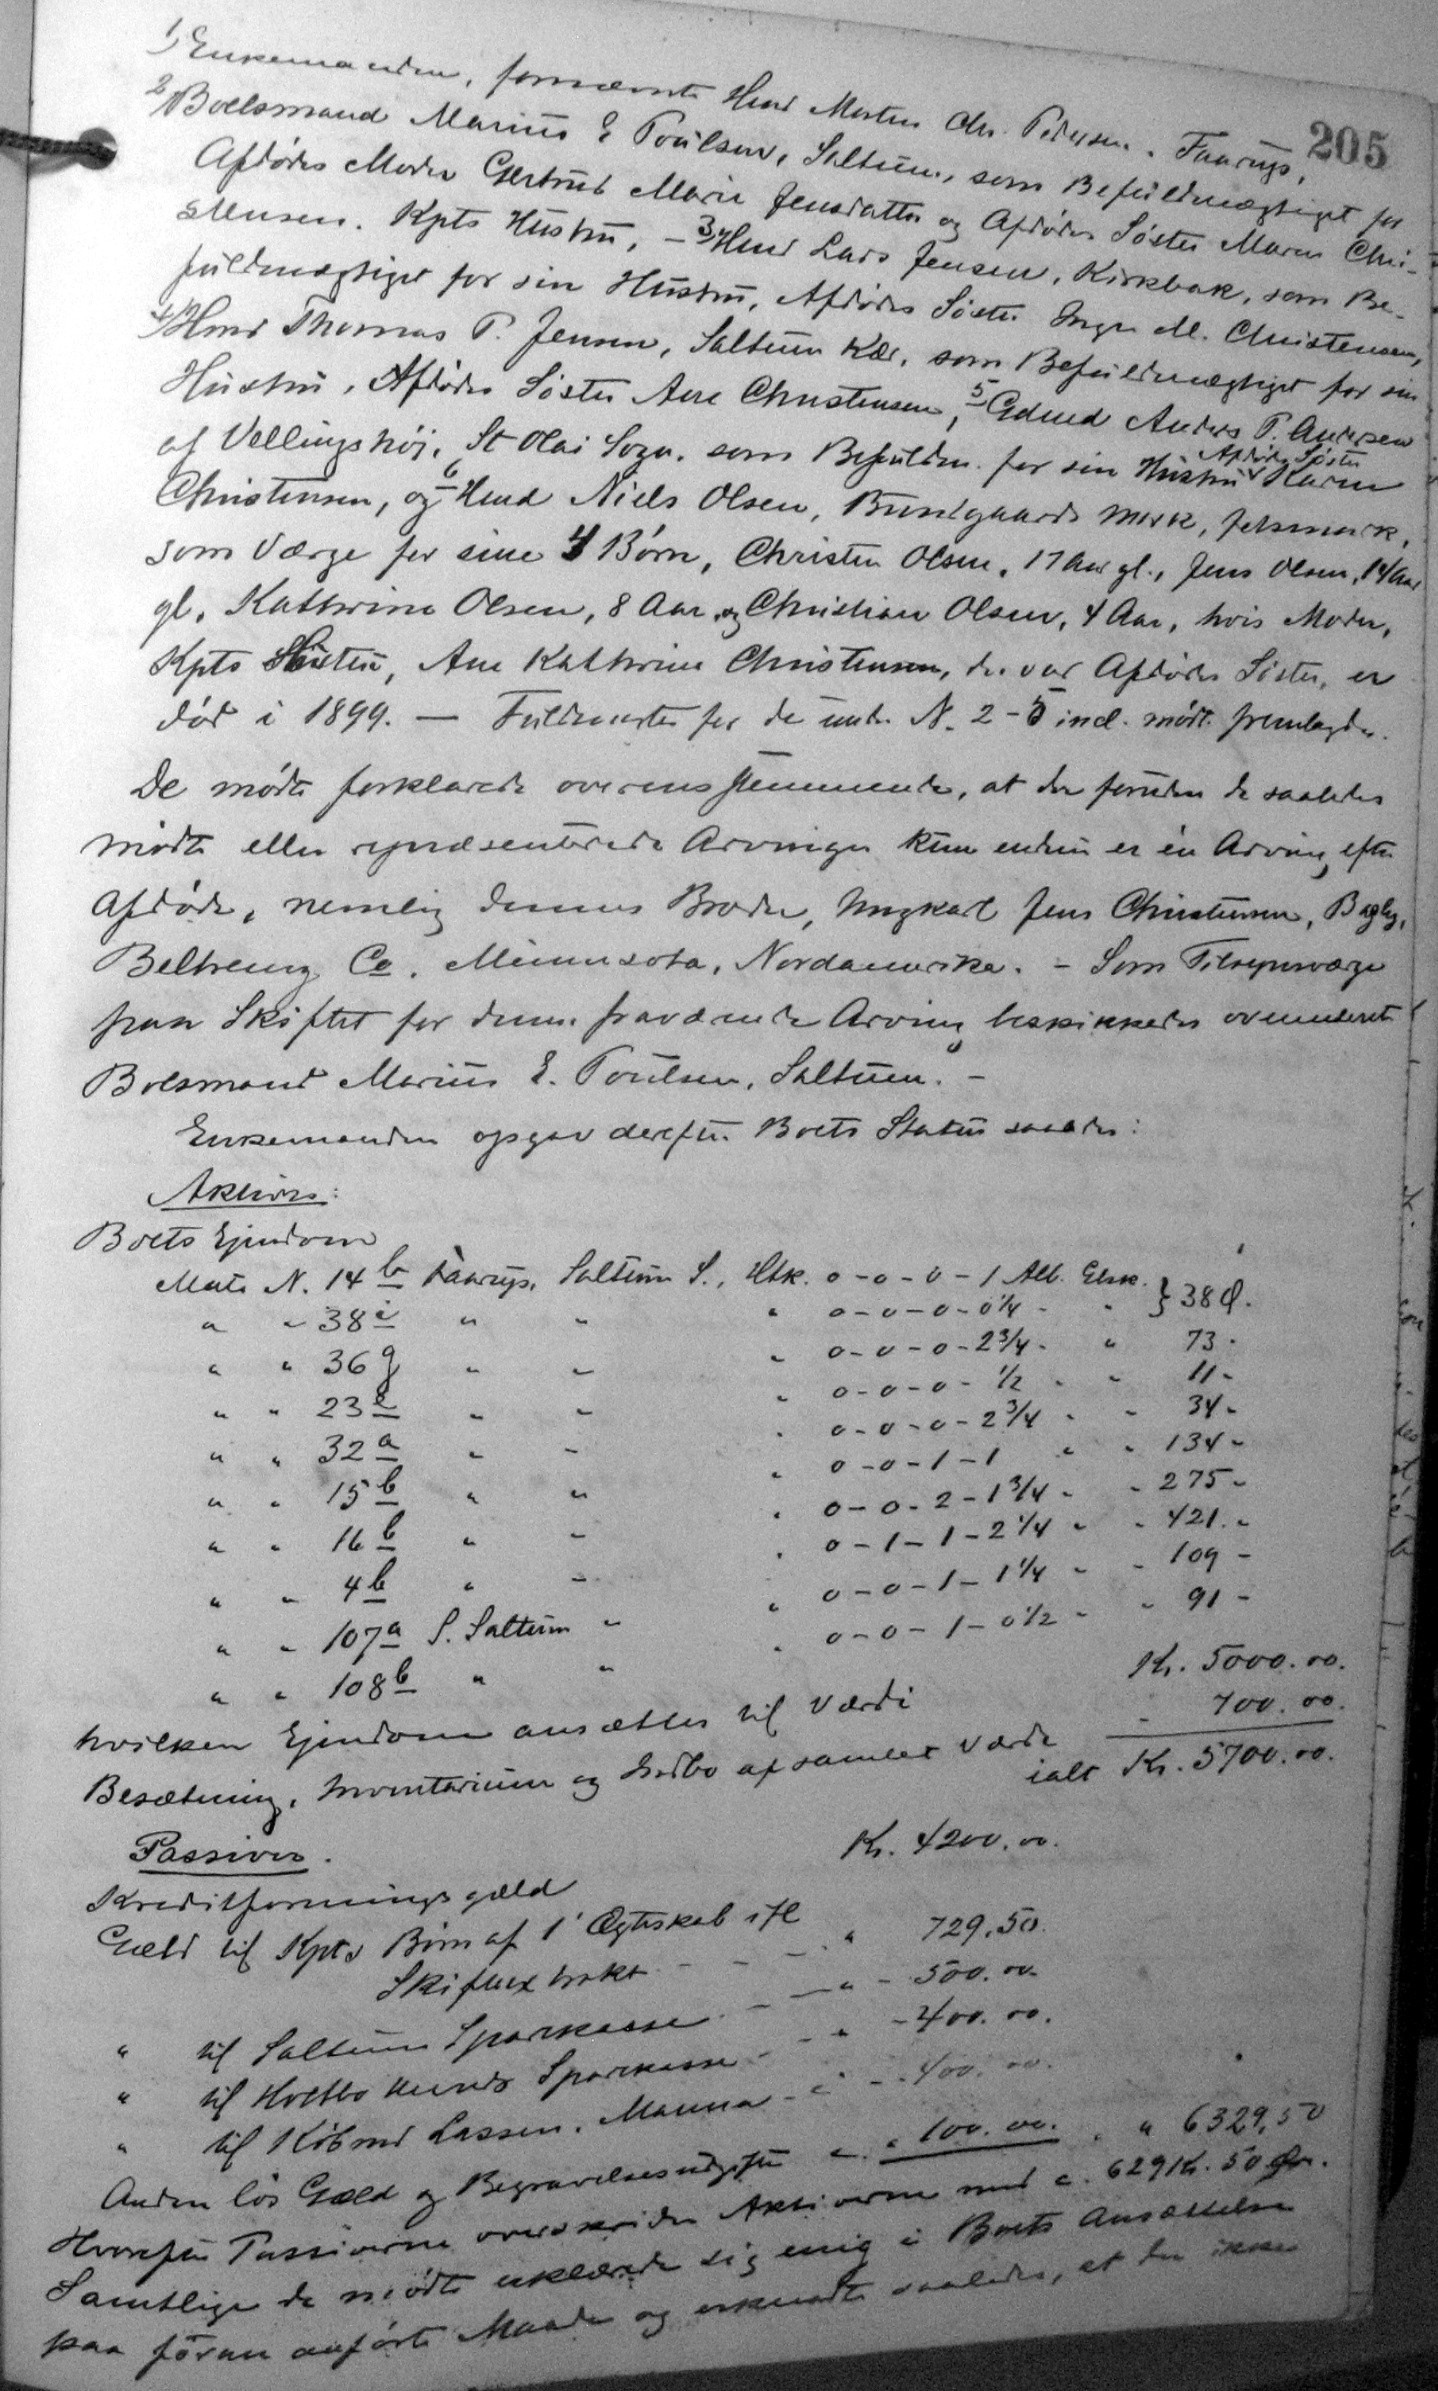 205
1) Enkemanden, fornævnte Hmd Morten Chr. Pedersen, Faarup,
2) Boelsmand Marius E Poulsen, Saltum, som Befuldmægtiget for
Afdødes Moder Gertrud Marie Jensdatter og Afdødes Søster Maren Chri-
stensen. Kpts Hustru, - 3) Hmd Lars Jensen, Kirkbak, som Be-
fuldmægtiget for sin Hustru, Afdødes Søster Inger M. Christensen,
4) Hmd Thomas P. Jensen, Saltum Kær, som Befuldmægtiget for sin
Hustru, Afdødes Søster Ane Christensen, 5 Gdmd Anders P. Andersen
af Vellingshøj, St Olai Sogn. som Befuldm. for sin Hustru Afdødes Søster Karen
Christensen, og 6 Hmd Niels Olsen, Bundgaards Mark, Jetsmark,
som Værge for sine 4 Børn, Christen Olsen, 17 Aar gl., Jens Olsen, 14 Aar
gl, Kathrine Olsen, 8 Aar, og Christian Olsen, 4 Aar, hvis Moder,
Kpts Hustru, Ane Kathrine Christensen, der var Afdødes Søster, er
død i 1899. — Fuldmagter for de under N. 2-5 incl. mødte fremlagdes.
De mødte forklarede overensstemmende, at der foruden de saaledes
mødte eller repræsenterede Arvinger kun endnu er én Arving efter
Afdøde, nemlig dennes Broder, Ungkarl Jens Christensen, Bagley,
Beltremy Co. Minnesota, Nordamerika. - Som Tilsynsværge
paa Skiftet for denne fraværende Arving beskikkedes ovennævnte
Boelsmand Marius E. Poulsen, Saltum. -
Enkemanden opgav derefter Boets Status saaledes:
Aktiver:
Boets Ejendom
Matr N. 14 b Faarup, Saltum S., Htk. 0-0-0-1 Alb. Glsk. } 38 Ø.
" " 38 i " " " 0-0-0-0¼ - "
" " 36 g " " " 0-0-0-2¾ - " 73 -
" " 23 e " " " 0-0-0-½ - " 11 -
" " 32 a " " " 0-0-0-2¾ " " 34 -
" " 15 b " " " 0-0-1-1 " " 134 -
" " 16 b " " " 0-0-2-1¾ - " 275 -
" " 4 b " " " 0-1-1-2¼ " " 421 . -
" " 107 a S. Saltum " " 0-0-1-1¼ - " 109 -
" " 108 b " " " 0-0-1-0½ - " 91 -
hvilken Ejendom ansættes til Værdi Kr. 5000.00.
Besætning, Inventarium og Indbo af samlet Værdi - 700.00.
ialt Kr. 5700.00.
Passiver.
Kreditforeningsgæld Kr. 4200.00.
Gæld til Kpts Børn af 1' Ægteskab ifl
Skifteextrakt - - - " 729,50.
" til Saltum Sparekasse - - " - 500.00
" til Hvetbo Herreds Sparekasse - - " - 400.00.
" til Købmd Lassen, Manna - " - 400.00.
Anden løs Gæld og Begravelsesudgifter " " 100.00. " " 6329,50
Hvorefter Passiverne overskrider Aktiverne med c. 629 Kr. 50 Øre.
Samtlige de mødte erklærede sig enig i Boets Ansættelse
paa foran anførte Maade og erkendte saaledes, at der ikke